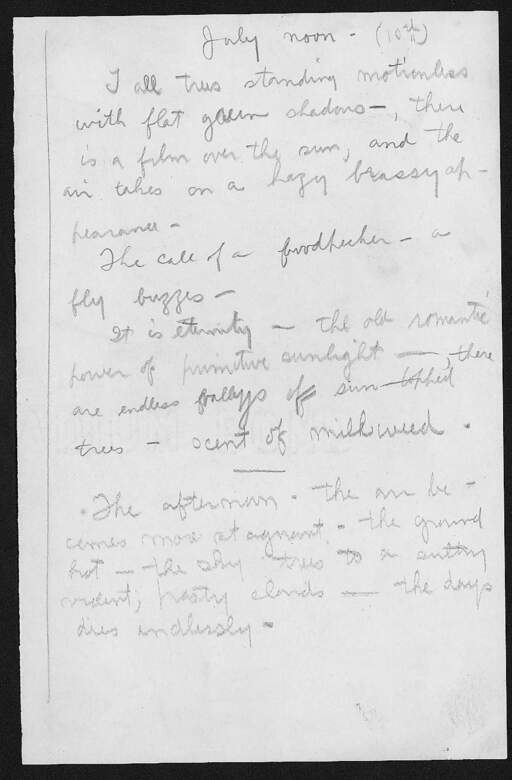 July noon - (10th)
I all trees standing motionless
with flat green shadows —, there
is a film over the sun, and the
air takes on a hazy brassy ap-
pearance -
The call of a woodpecker - a
fly buzzes -
It is eternity — the old romantic
power of primitive sunlight —, there
are endless valleys of sun-topped
trees - scent of milkweed .
The afternoon - the air be-
comes more stagnant - the ground
hot — the sky trees to a sultry
violent, pasty clouds — the days
dies endlessly -